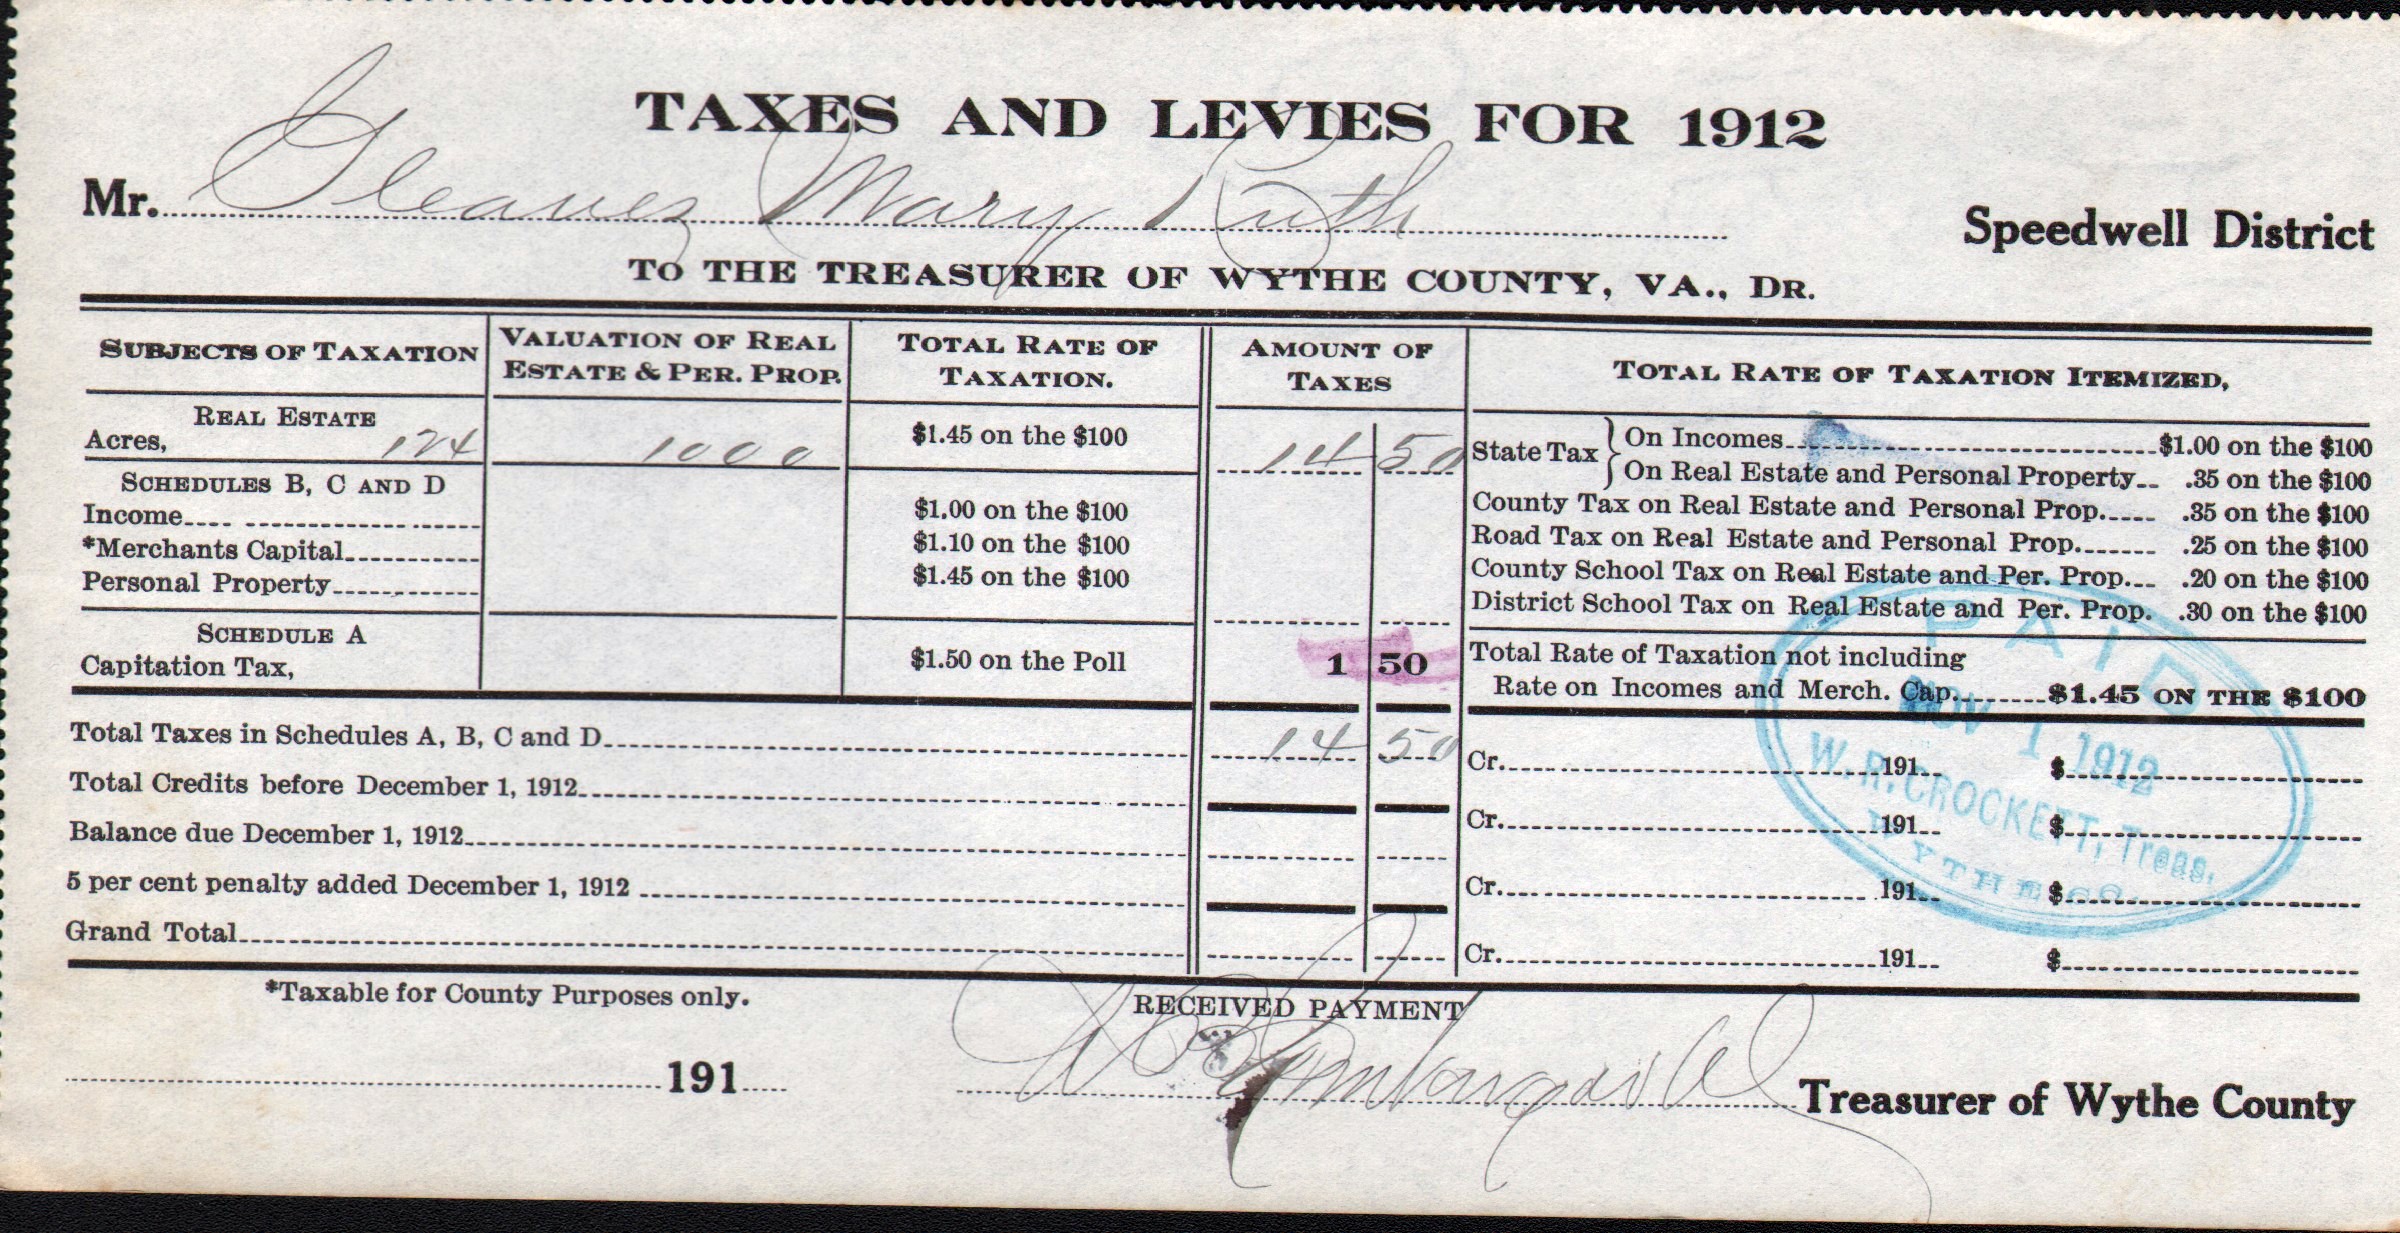 TAXES AND LEVIES FOR 1912
Mr. Gleaves Mary Ruth
Speedwell District
TO THE TREASURER OF WYTHE COUNTY, VA., DR.
SUBJECTS OF TAXATION
VALUATION OF REAL ESTATE & PER. PROP.
TOTAL RATE OF TAXATION.
AMOUNT OF TAXES
TOTAL RATE OF TAXATION ITEMIZED,
REAL ESTATE
Acres, 124 1000 $1.45 on the $100 14 50
SCHEDULES B, C AND D
Income $1.00 on the $100
*Merchants Capital $1.10 on the $100
Personal Property $1.45 on the $100
SCHEDULE A
Capitation Tax, $1.50 on the Poll 1 50
State Tax
On Incomes $1.00 on the $100
On Real Estate and Personal Property .35 on the $100
County Tax on Real Estate and Personal Prop. .35 on the $100
Road Tax on Real Estate and Personal Prop. .25 on the $100
County School Tax on Real Estate and Per. Prop. .20 on the $100
District School Tax on Real Estate and Per. Prop. .30 on the $100
Total Rate of Taxation not including
Rate on Incomes and Merch. Cap. $1.45 ON THE $100
Total Taxes in Schedules A, B, C and D 14 50
Total Credits before December 1, 1912
Balance due December 1, 1912
5 per cent penalty added December 1, 1912
Grand Total
Cr. 191 $
Cr. 191 $
Cr. 191 $
Cr. 191 $
PAID
NOV 1 1912
W. R. CROCKETT, Treas.
WYTHE CO.
*Taxable for County Purposes only.
RECEIVED PAYMENT
191
Treasurer of Wythe County